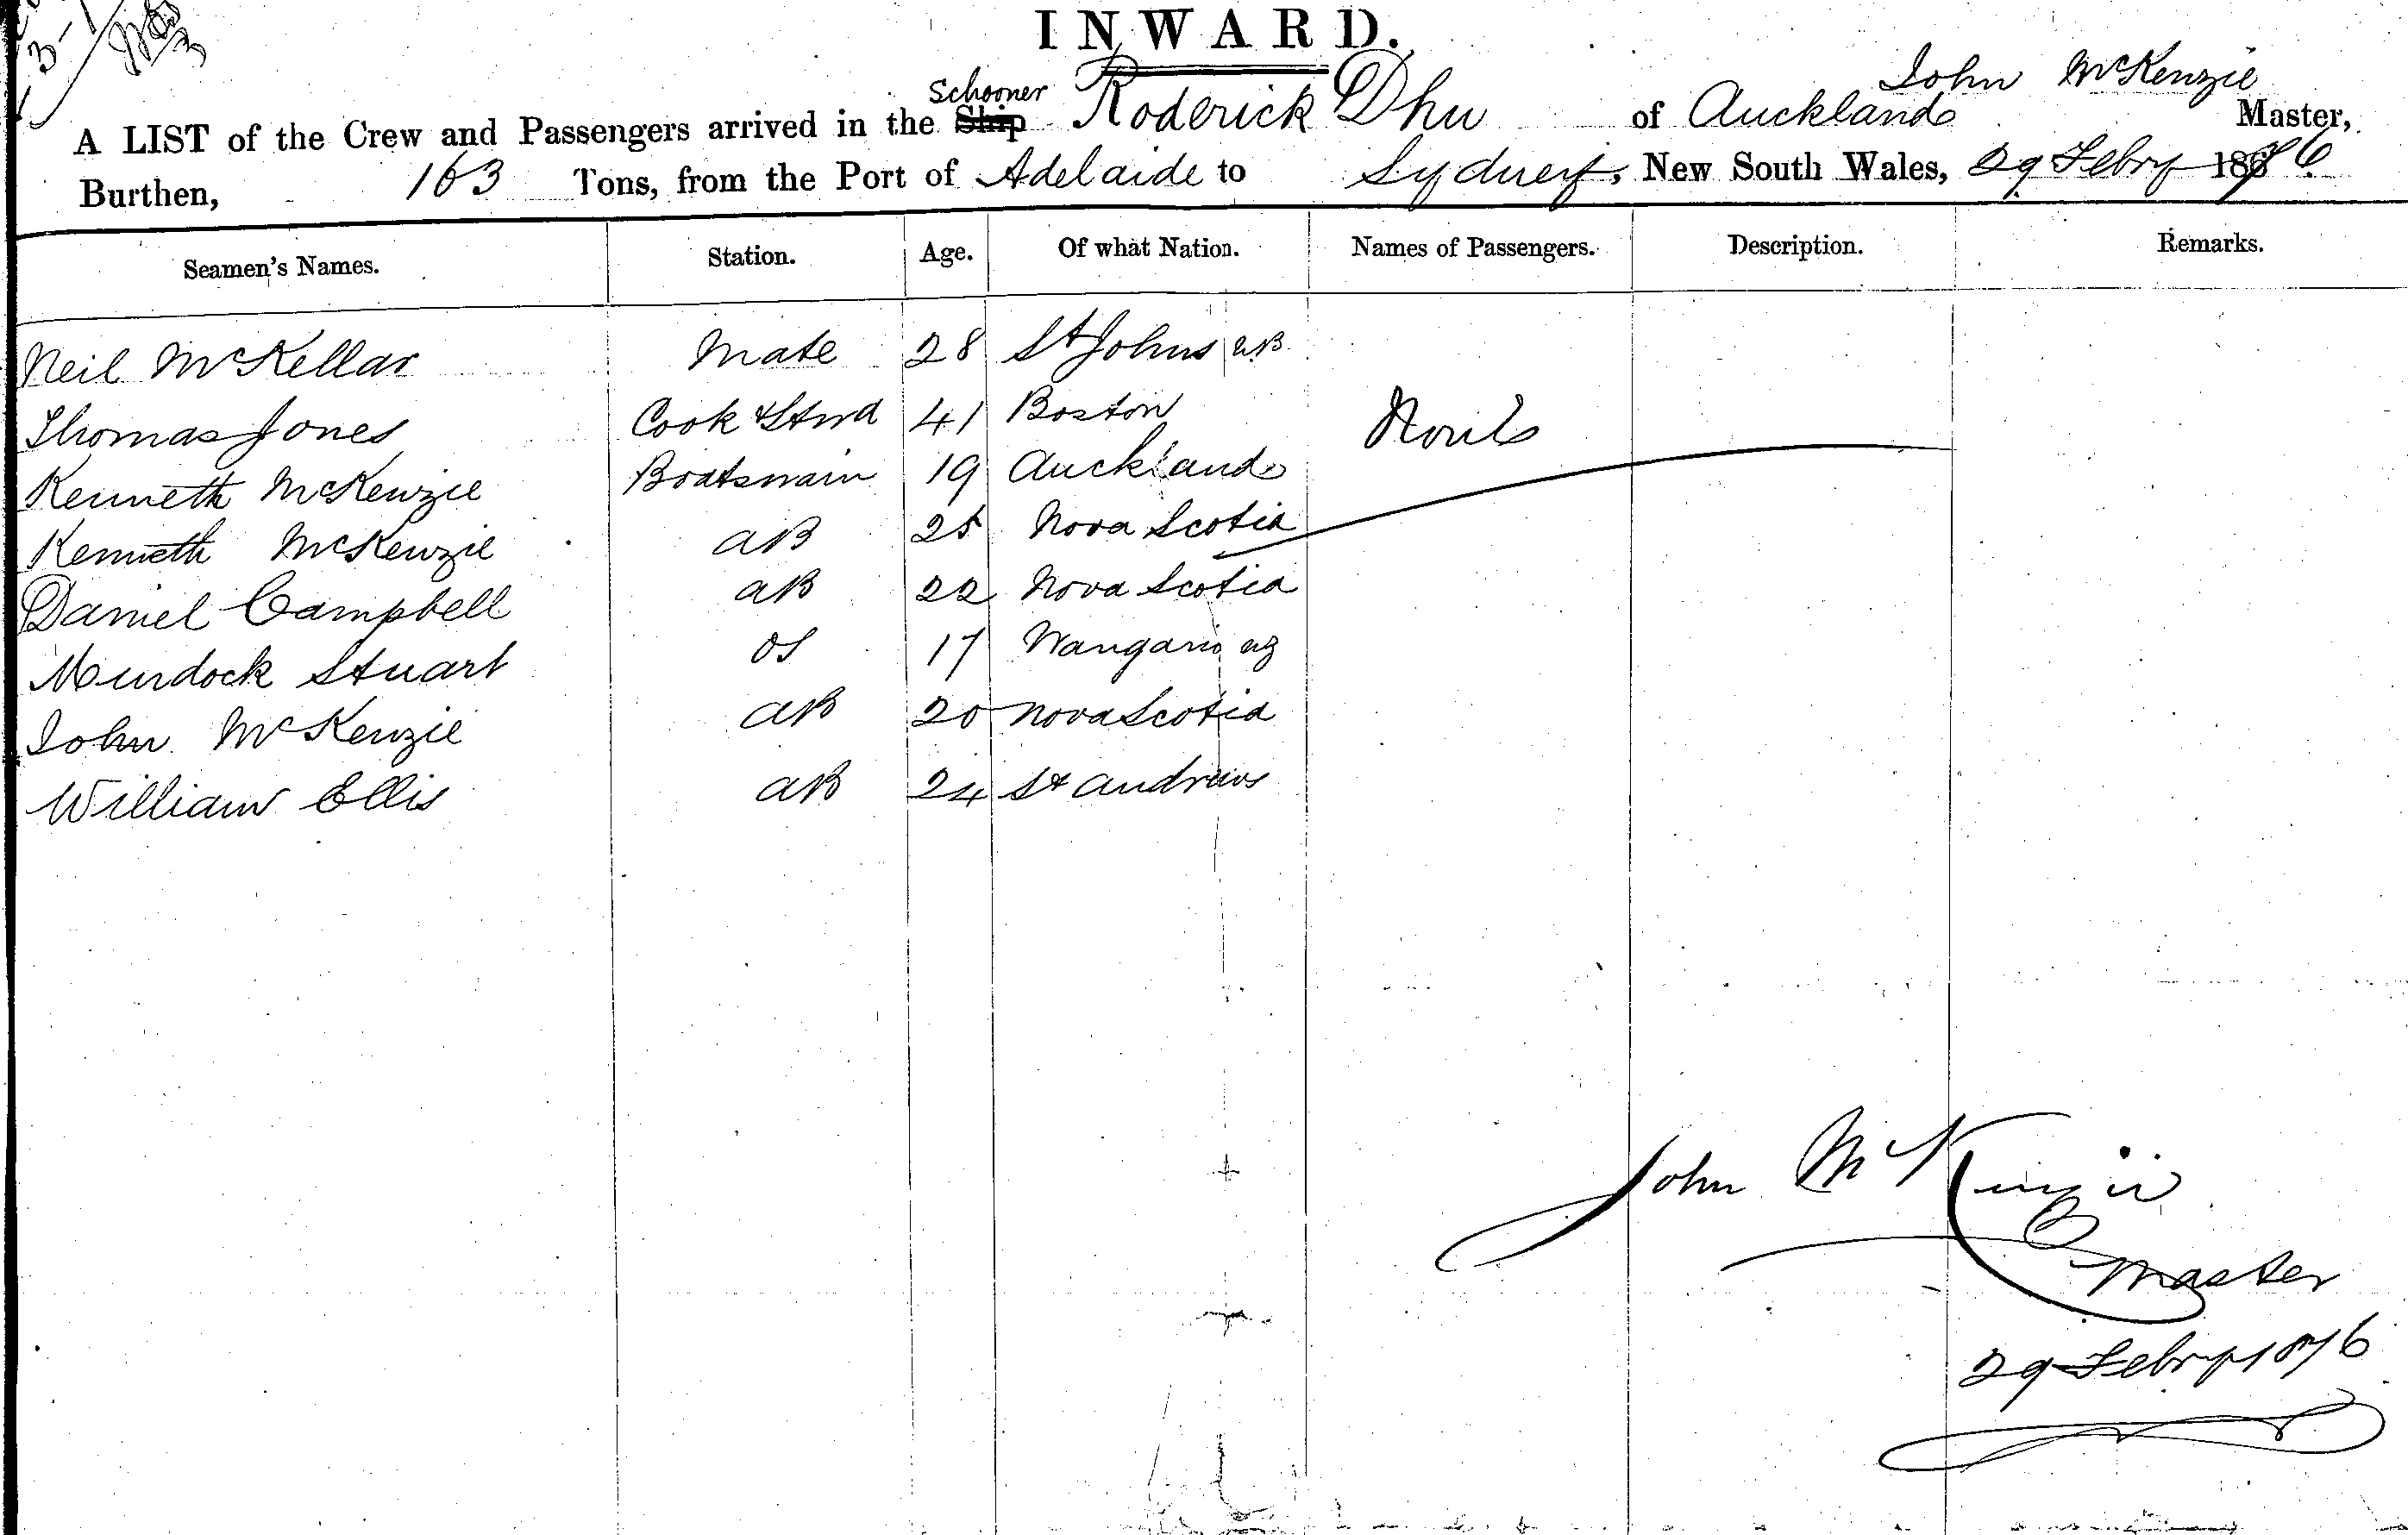 INWARD.
John McKenzie
A LIST of the Crew and Passengers arrived in the Ship Schooner Roderick Dhu of Auckland Master,
Burthen, 163 Tons, from the Port of Adelaide to Sydney, New South Wales, 29 Febry 1876
Seamen's Names. Station. Age. Of what Nation. Names of Passengers. Description. Remarks.
Neil McKellar Mate 28 St Johns NB
Thomas Jones Cook & Stwd 41 Boston Nil
Kenneth McKenzie Boatswain 19 Auckland
Kenneth McKenzie AB 25 Nova Scotia
Daniel Campbell AB 22 Nova Scotia
Murdock Stuart OS 17 Wangarei NZ
John McKenzie AB 20 Nova Scotia
William Ellis AB 24 St Andrews
John McKenzie
Master
29 Febry 1876